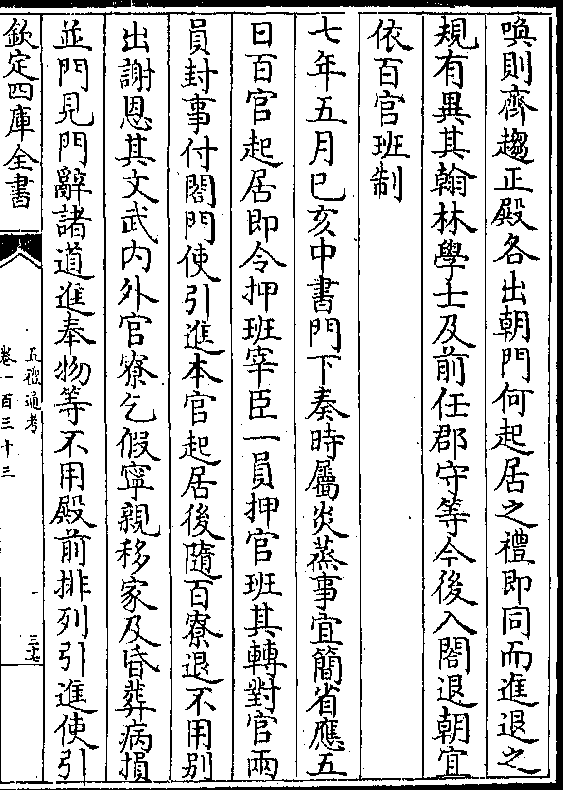 喚則齊趨正殿各出朝門何起居之禮即同而進退之
規有異其翰林學士及前任郡守等今後入閤退朝宜
依百官班制
七年五月己亥中書門下奏時屬炎蒸事宜簡省應五
日百官起居即令押班宰臣一員押官班其轉對官兩
員封事付閤門使引進本官起居後隨百寮退不用别
出謝恩其文武内外官寮乞假寧親移家及昏葬病損
並門見門辭諸道進奉物等不用殿前排列引進使引
欽定四庫全書
五禮通考
卷一百三十三
三七